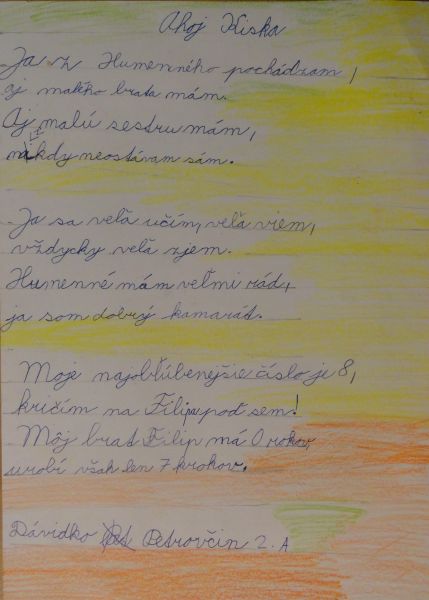 Ahoj Kiska
Ja z Humenného pochádzam,
aj malého brata mám.
Aj malú sestru mám,
nikdy neostávam sám.
Ja sa veľa učím, veľa viem,
vždycky veľa zjem.
Humenné mám veľmi rád,
ja som dobrý kamarát.
Moje najobľúbenejšie číslo je 8,
kričím na Filipa poď sem!
Môj brat Filip má 0 rokov,
urobí však len 7 krokov.
Dávidko Petrovčin 2. A